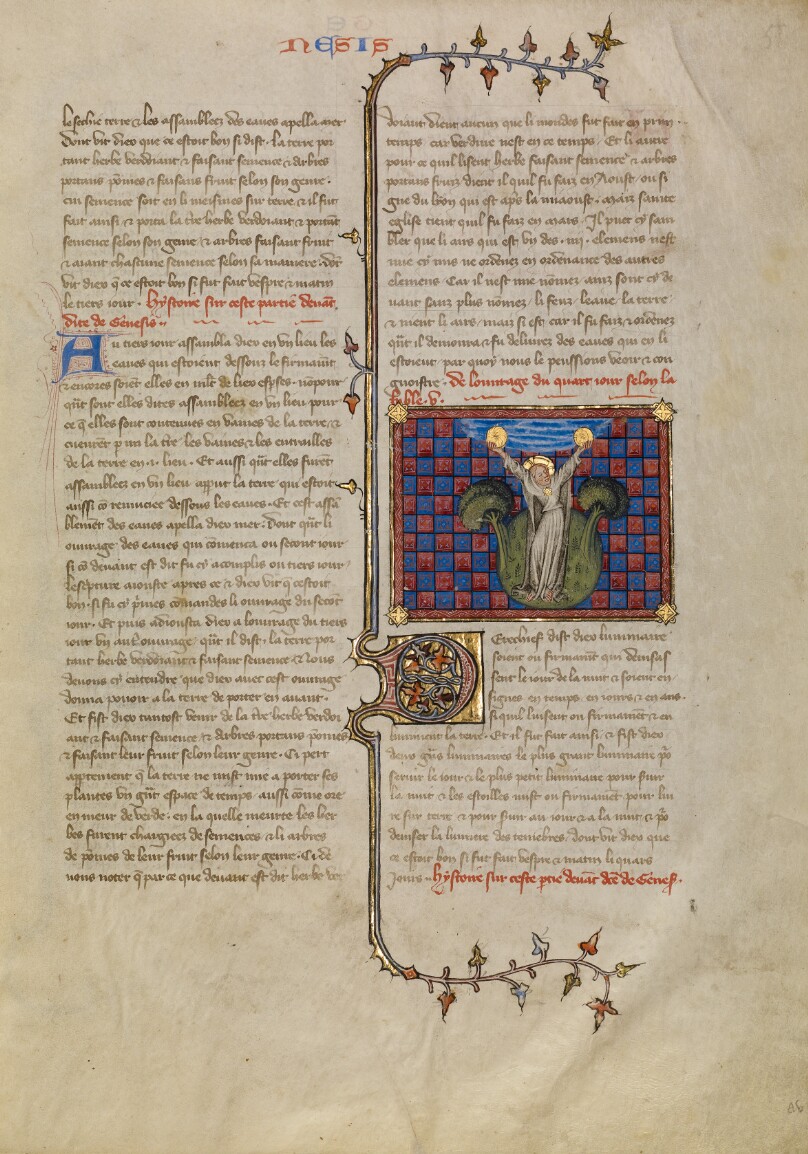 NESIS
le seche terre & les assamblees des eaues apella mer
Dont vit dieu que ce estoit bon si dist. la terre por
tant herbe verdoiant & faisant semence & arbres
portans pomes & faisans fruit selon son genre.
cui semence soit en li meismes sur terre & il fut
fait ainsi & porta la tre herbe verdoiant & portãt
semence selon son genre & arbres faisant fruit
& aiant chascune semence selon sa maniere. dõt
vit dieu q ce estoit bon si fut fait vespre & matin
le tiers iour. hystoire sur ceste partie deuãt
dite de Genesis.
Au tiers iour assambla dieu en vn lieu les
eaues qui estoient dessouz le firmamẽt
& encores soiẽt elles en mlt de lieu
qñt sont elles dites assamblees en vn lieu pour
ce q elles sont contenues en vaines de la terre &
les vaines & les entrailles
de la terre en .i. lieu. Et aussi qñt elles furẽt
assamblees en vn lieu apput la terre qui estoit
aussi cõ dessous les eaues. Et cest assã
blemẽt des eaues apella dieu mer. Dont qñt li
ouurage des eaues qui cõmenca ou secont iour
si cõ deuant est dit fu acomplis ou tiers iour
lescpture aiouste apres ce & dieu vit q cestoit
bon. si fu li ouurage du secõt
iour. Et puis adiousta dieu a louurage du tiers
iour vn autre ouurage qñt il dist. la terre por
tant herbe verdoiant & faisant semence & nous
deuons cy entendre que dieu auec cest ouurage
donna pouoir a la terre de porter en auant.
Et fist dieu tantost venir de la tre herbe verdoi
ant & faisant semence & arbres portans pomes
& faisant leur fruit selon leur genre. Ci pert
appertement q la terre ne mist mie a porter ses
plantes vn grãt espace de temps aussi cõme ore
en meur de verde. en la quelle les her
bes furent chargiees de semences & li arbres
de pomes de leur fruit selon leur genre. Ci de
uons noter q par ce que deuant est dit herbe ver
doiant dient aucun que li mondes fut fait en prin
temps car verdure nest en ce temps. Et li autre
pour ce quil lisent herbe faisant semence & arbres
portans fruiz dient il quil fu faiz en Aoust, ou si
gne du lyon qui est aps la miaoust. mais sainte
eglise tient quil fu faiz en mars. Il puet cy sam
bler que li airs qui est vn des .iiii. elemens nest
mie cy mis ne ordenez en ordenance des autres
elemens. Car il nest mie nõmez ainz sont cis de
uant sanz plus nõmez. li feuz. leaue. la terre
& ment li airs. mais si est. car il fu faiz & ordenez
qñt il demoura & fu deliurez des eaues qui en li
estoient par quoy nous le peussions veoir & con
gnoistre. de louurage du quart iour selon la
bible. v.
Derechief dist dieu luminaire
soient ou firmamẽt qui deuisas
sent le iour de la nuit & soient en
signes en temps en iours & en ans.
si quil luisent ou firmamẽt & en
luminent la terre. Et il fut fait ainsi & fist dieu
deux grãs luminaires le plus grant luminaire po
seruir le iour & le plus petit luminaire pour seruir
la nuit & les estoilles mist ou firmamẽt pour lui
re sur terre & pour seruir au iour & a la nuit & po
deuiser la lumiere des tenebres. dont vit dieu que
ce estoit bon si fut fait vespre & matin li quars
iours. hystoire sur ceste ptie deuãt dce de Genes.